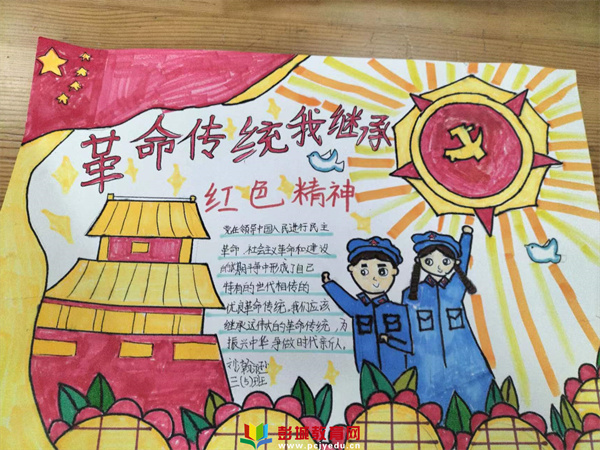 革命传统我继承
红色精神
党在领导中国人民进行民主
革命、社会主义革命和建设
时期斗争中形成了自己
特有的世代相传的
优良革命传统,我们应该
继承这伟大的革命传统,为
振兴中华争做时代新人。
三(5)班
彭城教育网
www.pcjyedu.cn